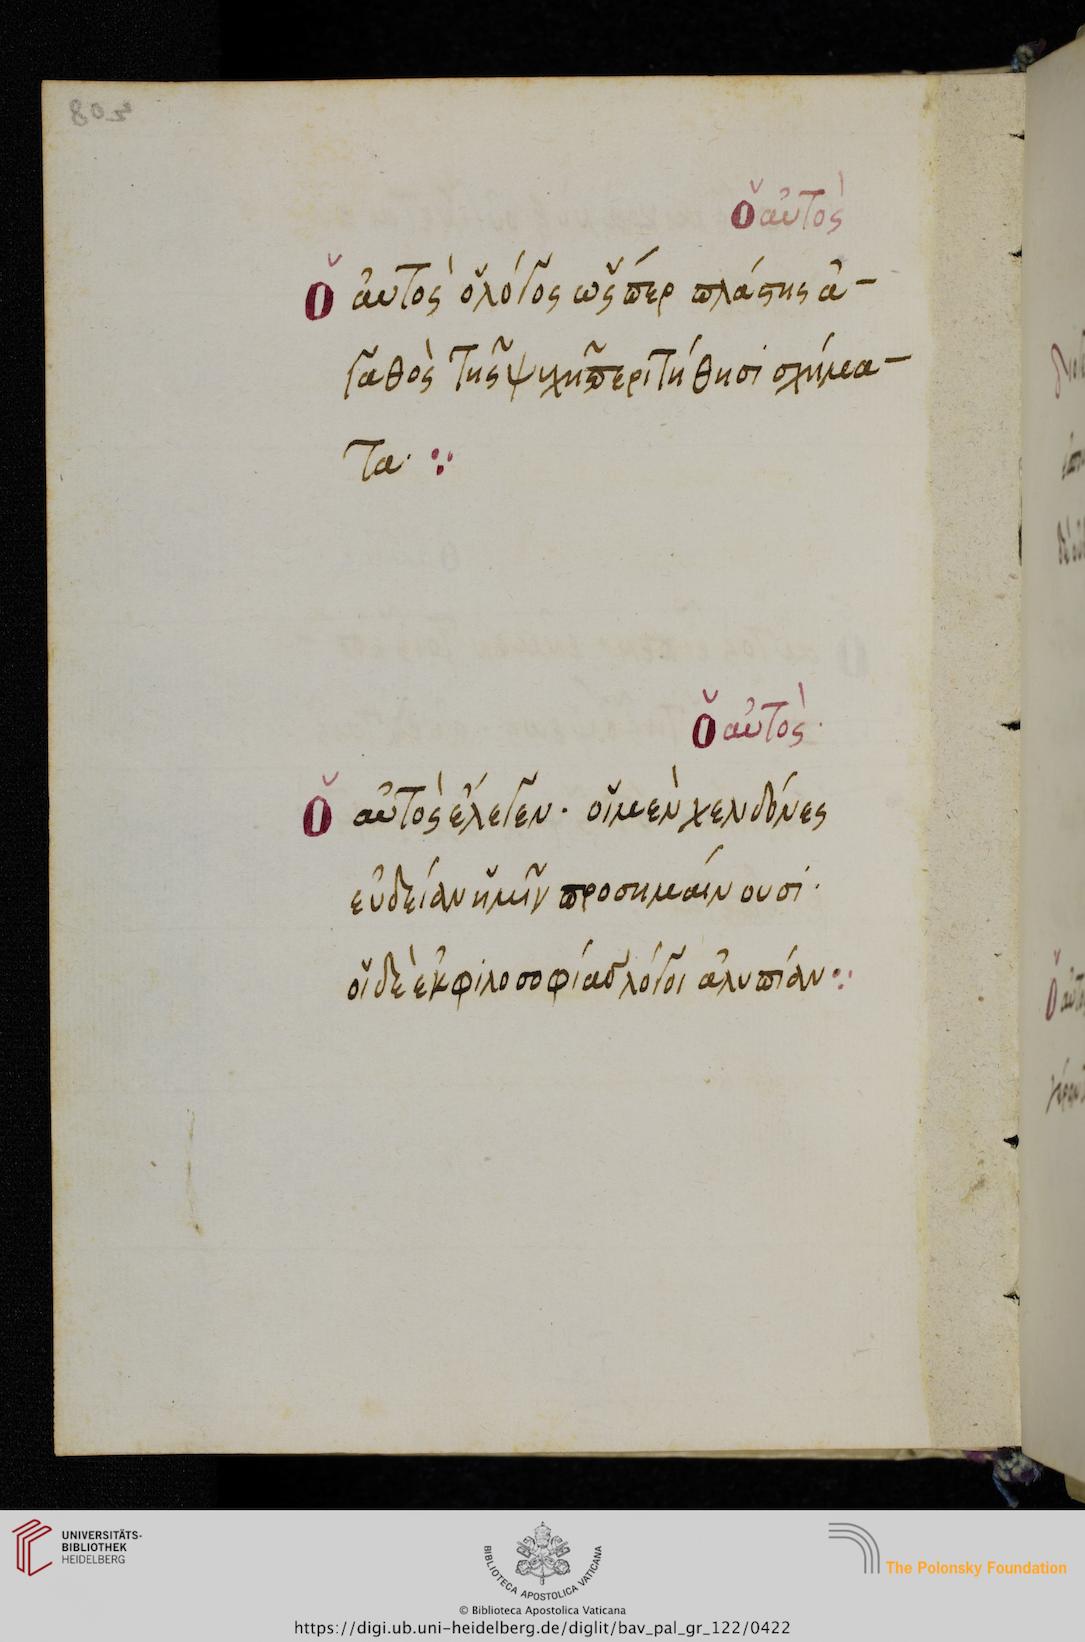 Ὁ αὐτὸς
Ὁ αὐτὸς ὁ λόγος ὥσπερ πλάστης ἀ-
γαθὸς τῆς ψυχῆς περιτήθησι σχήμα-
τα:
Ὁ αὐτὸς.
Ὁ αὐτὸς ἔλεγεν. οἱ μὲν χελιδόνες
εὐδείαν ἡμῖν προσημαίνουσι.
οἱ δὲ ἐκ φιλοσοφίας λόγοι ἀλυπίαν:
UNIVERSITÄTS-
BIBLIOTHEK
HEIDELBERG
BIBLIOTECA APOSTOLICA VATICANA
The Polonsky Foundation
© Biblioteca Apostolica Vaticana
https://digi.ub.uni-heidelberg.de/diglit/bav_pal_gr_122/0422